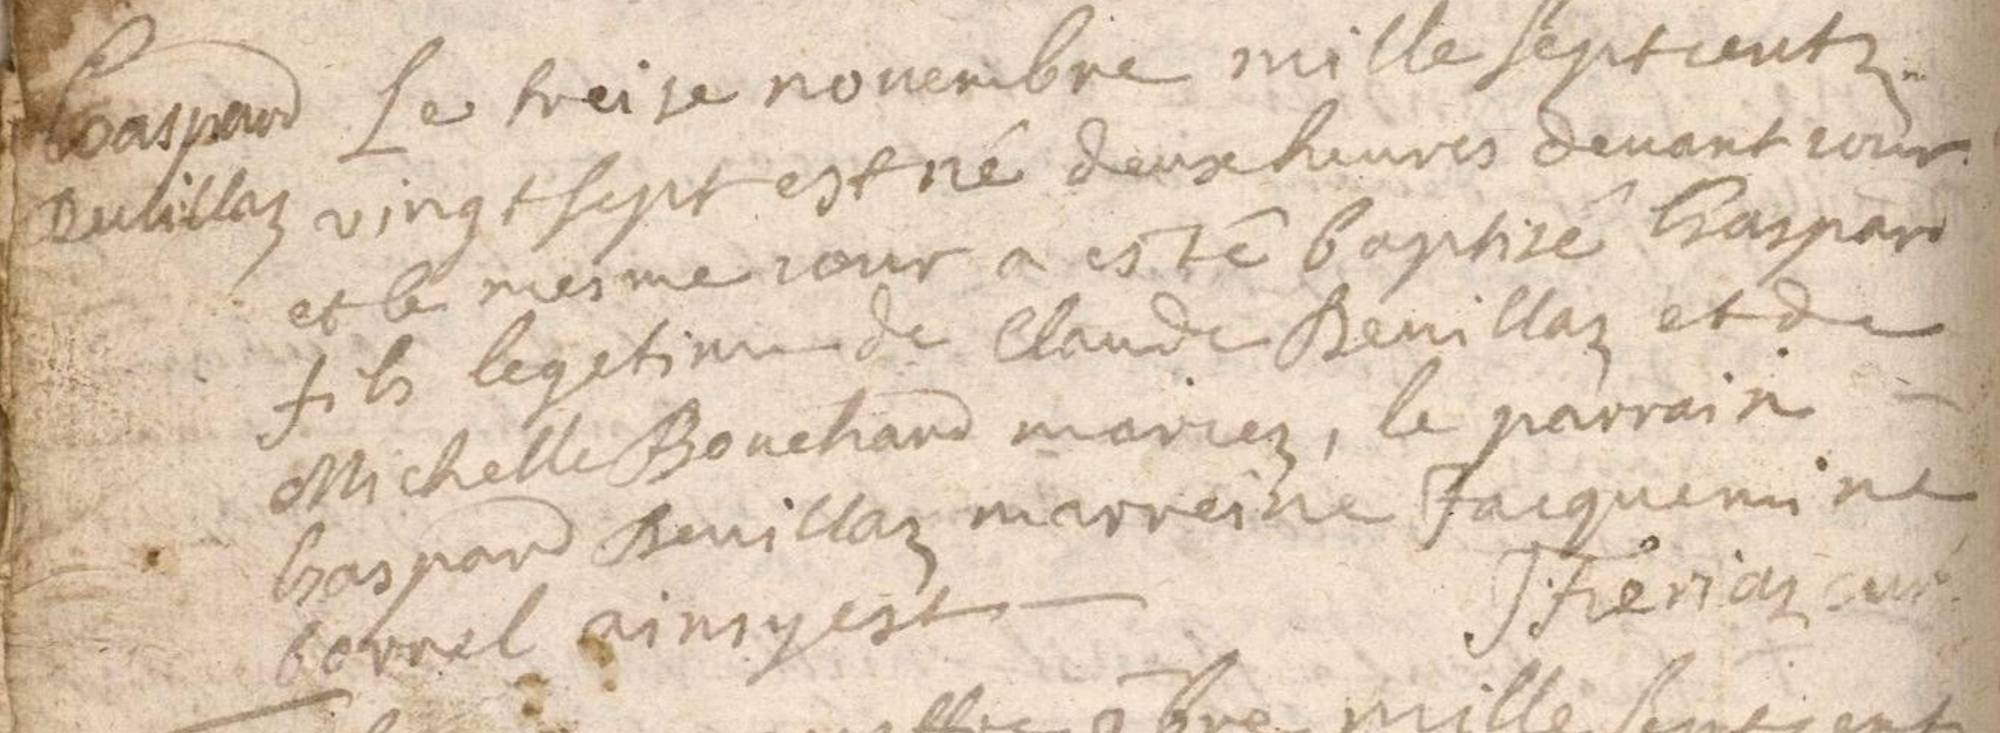 Gaspard Le treize novembre mille septcentz
Devillaz vingt sept est né deux heures devant iour
et le mesme iour a esté baptizé Gaspard
fils legetime de Claude Devillaz et de
Michelle Bouchard mariez, le parrain
Gaspard Devillaz marreine Jacquemine
borrel ainsy est
curé
mille septcent